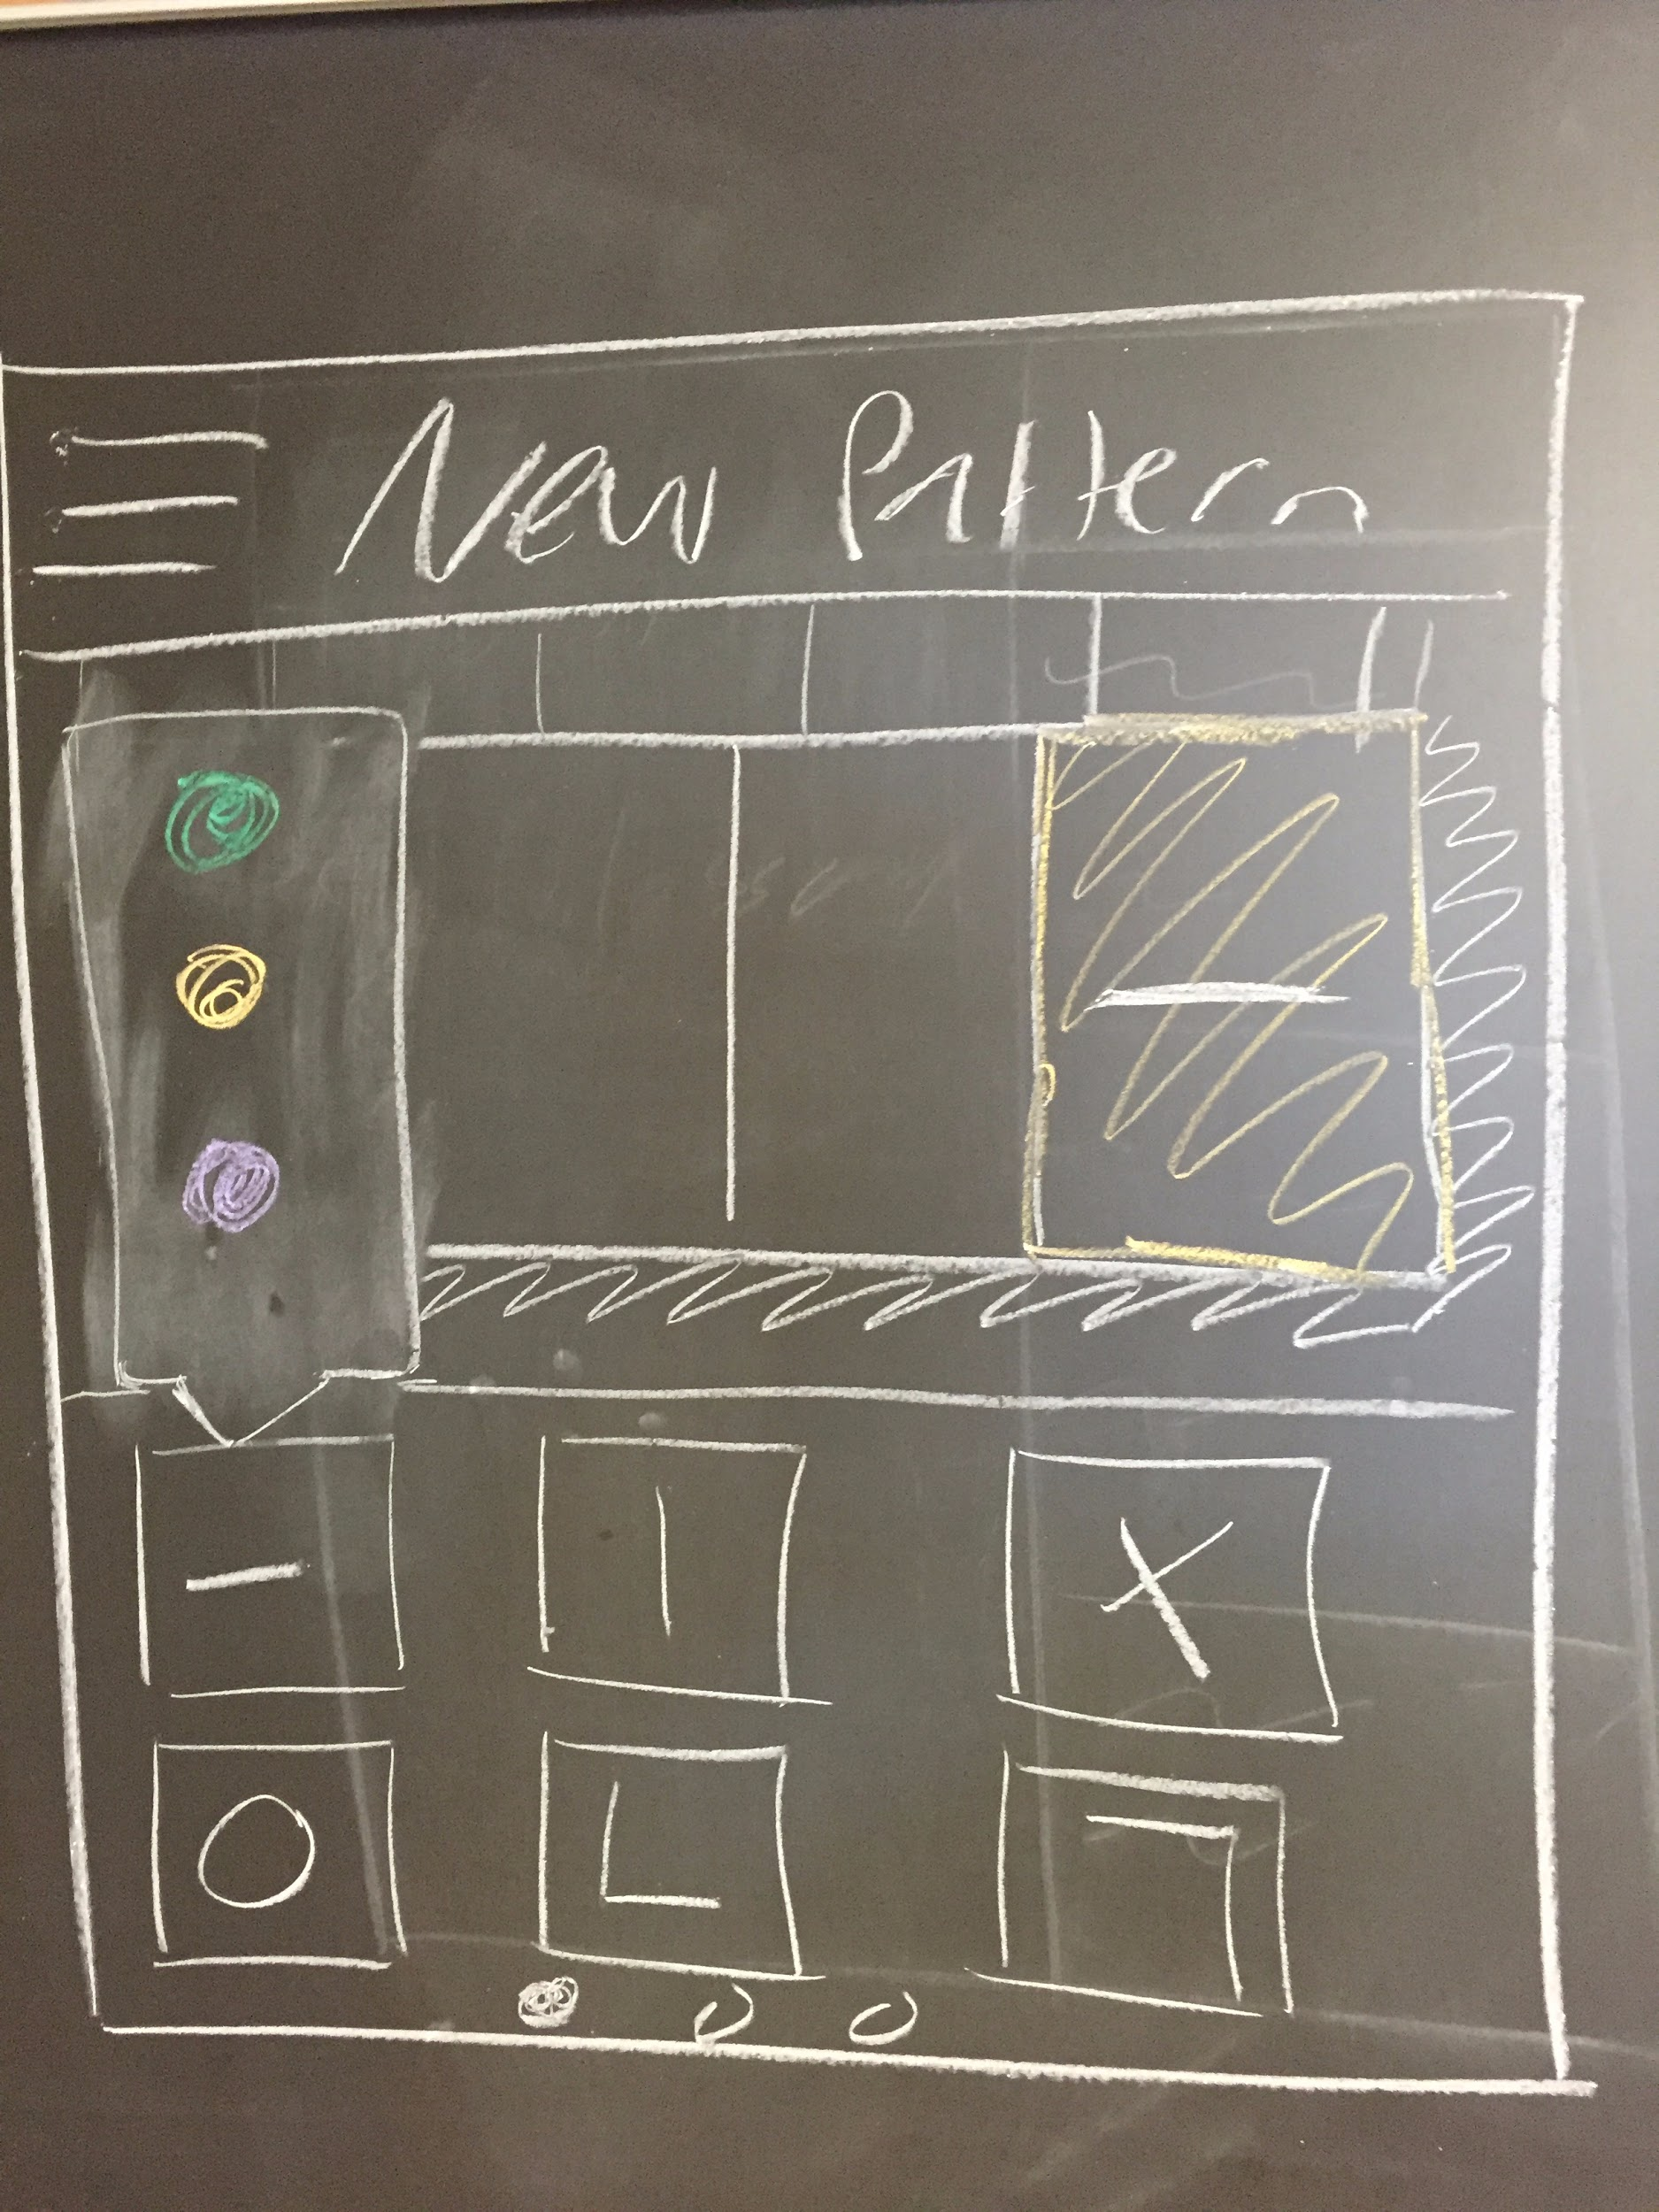 New Pattern